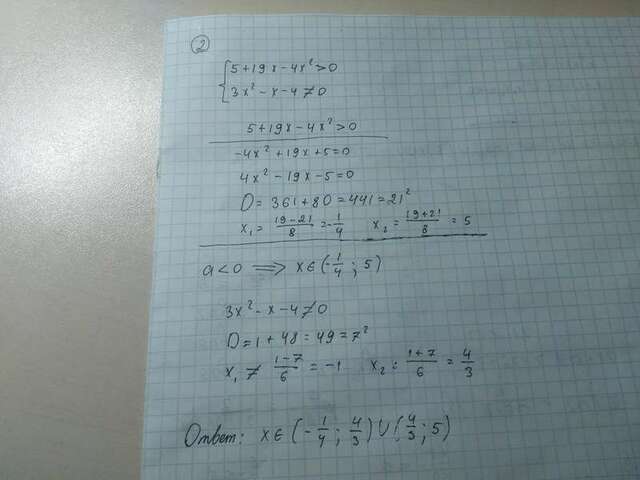 2
5+19x-4x²>0
3x²-x-4≠0
5+19x-4x²>0
-4x²+19x+5=0
4x²-19x-5=0
D=361+80=441=21²
x₁=(19-21)/8=-1/4 x₂=(19+21)/8=5
a<0 ⟹ x∈(-1/4;5)
3x²-x-4≠0
D=1+48=49=7²
x₁≠(1-7)/6=-1 x₂=(1+7)/6=4/3
Ответ: x∈(-1/4;4/3)∪(4/3;5)